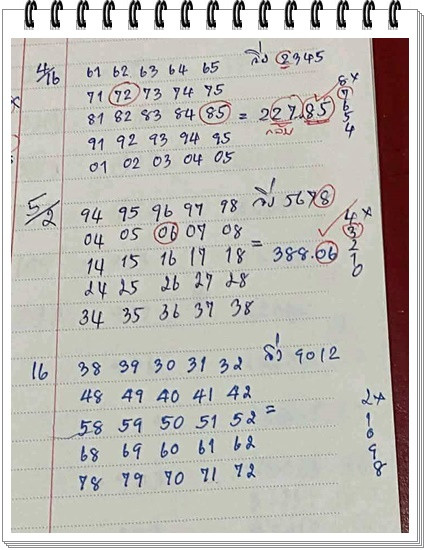 4/16 61 62 63 64 65 วิ่ง 2345
71 72 73 74 75 8×
81 82 83 84 85 = 227.85 7
91 92 93 94 95 กลับ 6
01 02 03 04 05 5
4
5/2 94 95 96 97 98 วิ่ง 5678
04 05 06 07 08 4×
14 15 16 17 18 = 388.06 3
24 25 26 27 28 2
34 35 36 37 38 1
0
16 38 39 30 31 32 วิ่ง 9012
48 49 40 41 42 2×
58 59 50 51 52 = 1
68 69 60 61 62 0
78 79 70 71 72 9
8